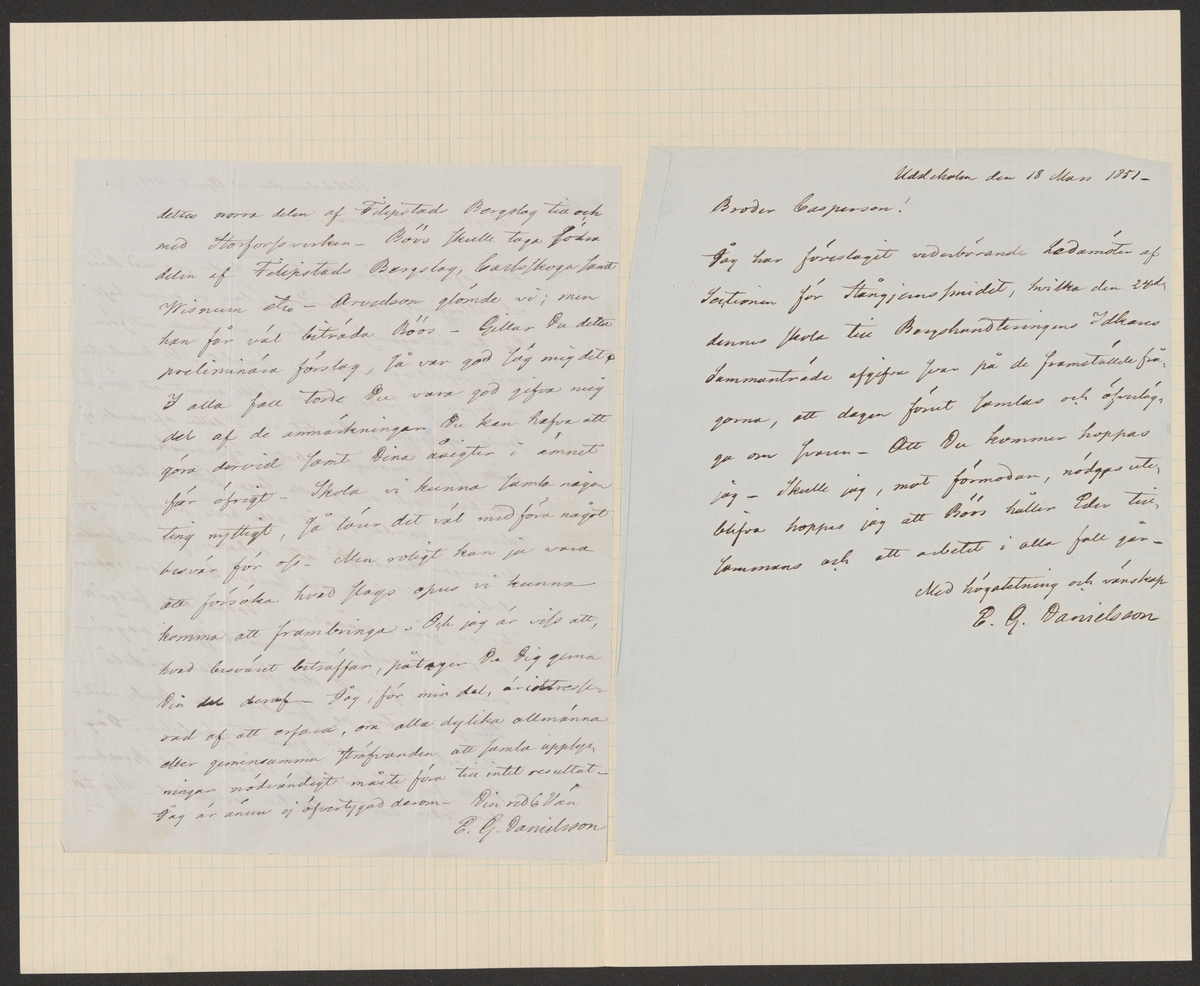 dettes norra delen af Filipstads Bergslag till och
med Storforssverken – Böös skulle taga södra
delen af Filipstads Bergslag, Carlskoga samt
Wisnum etc – Arvedson glömde vi; men
han får väl biträda Böös – Gillar Du detta
preliminära förslag, så var god säg mig det
I alla fall torde Du vara god gifva mig
del af de anmärkningar Du kan hafva att
göra dervid samt Dina åsigter i ämnet
för öfrigt – Skola vi kunna samla någon
ting nyttigt, så lärer det väl medföra något
besvär för oss – Men roligt kan ja vara
att försöka hvad slags opus vi kunna
komma att frambringa – Och jag är viss att,
hvad besväret beträffar, påtager Du Dig gerna
Din del deraf – Jag, för min del, är intresse-
rad af att erfara, om alla dylika allmänna
eller gemensamma sträfvanden att samla upplys-
ningar nödvändigt måste föra till intet resultat –
Jag är ännu ej öfvertygad derom – Din Vän
E. G. Danielsson
Uddeholm den 18 Mars 1851 –
Broder Casperson!
Jag har föreslagit vederbörande Ledamöter af
Sectionen för Stångjernssmidet, hvilka den 24de
dennes skola till Bergshandteringens Idkares
Sammanträde afgifva svar på de framställde frå-
gorna, att dagen förut samlas och öfverläg-
ga om svaren – Att Du kommer hoppas
jag – Skulle jag, mot förmodan, nödgas ute-
blifva hoppas jag att Böös håller Eder till-
sammans och att arbetet i alla fall går –
Med högaktning och vänskap
E. G. Danielsson